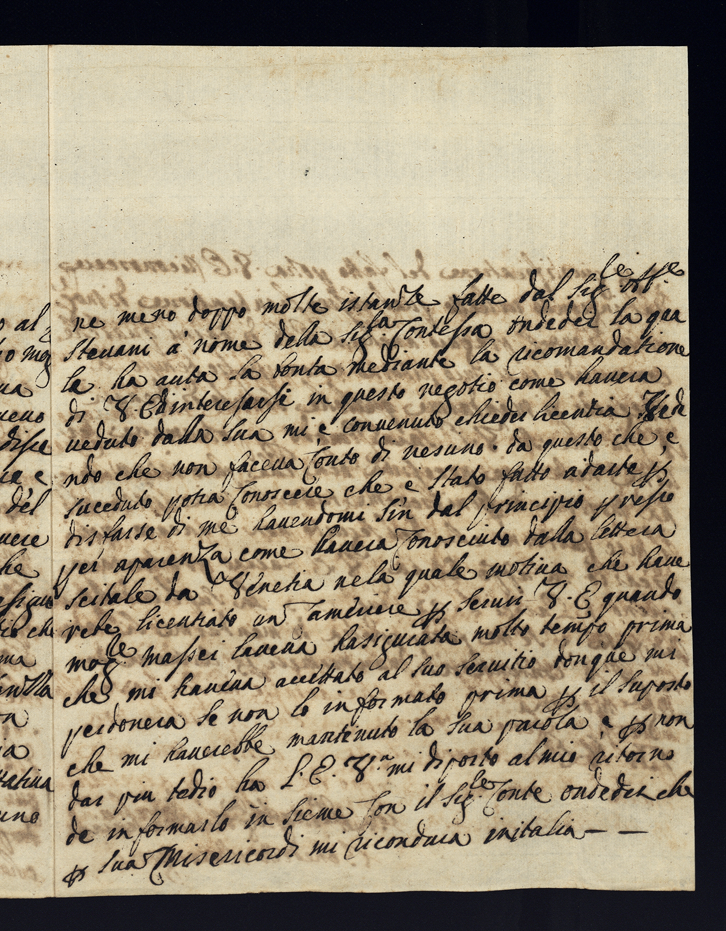 ne meno doppo molte istanze fatte dal Sig.le
Stevani a nome della Sig.ra Contessa Ondedei la qua
la ha auta la bonta mediante la ricomandatione
di V. E dinteresarsi in questo negotio come havera
veduto dalla sua mi è convenuto chieder licentia
ndo che non faceva Conto di nesuno. da questo che, e
suceduto potra Conoscere che e stato fatto adarte
disfarse di me havendomi sin dal principio preso
per aparenza come havera Conosciuto dalla lettera
scitale da Venetia nela quale motiva che have
rebe licentiato un Cameriere servir V. E quando
mog.le massei laveva molto tempo prima
che mi haveva accettato al suo servitio donque mi
perdonera se non lo informato prima il suposto
che mi haverebbe mantenuto la sua parola e non
dar piu tedio ha L. E. V.a mi diporto al mio ritorn
de informarlo in sieme Con il Sig.le Conte ondedei che
sua Misericordi mi riconduca initalia — —
o al
mog
ua
veno
disce
ia e
del
vere
he
esigui
che
ma
on
ia
tativa
uno